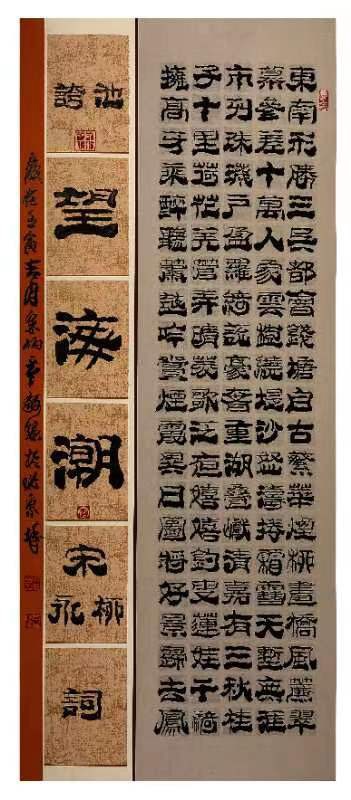 東南形勝三吳都會錢塘自古繁華煙柳畫橋風簾翠
幕參差十萬人家雲樹繞堤沙怒濤捲霜雪天塹無涯
市列珠璣戶盈羅綺競豪奢重湖疊巘清嘉有三秋桂
子十里荷花羌管弄晴菱歌泛夜嬉嬉釣叟蓮娃千騎
擁高牙乘醉聽簫鼓吟賞煙霞異日圖將好景歸去鳳
池誇
望
海
潮
宋柳永
詞
歲在壬寅